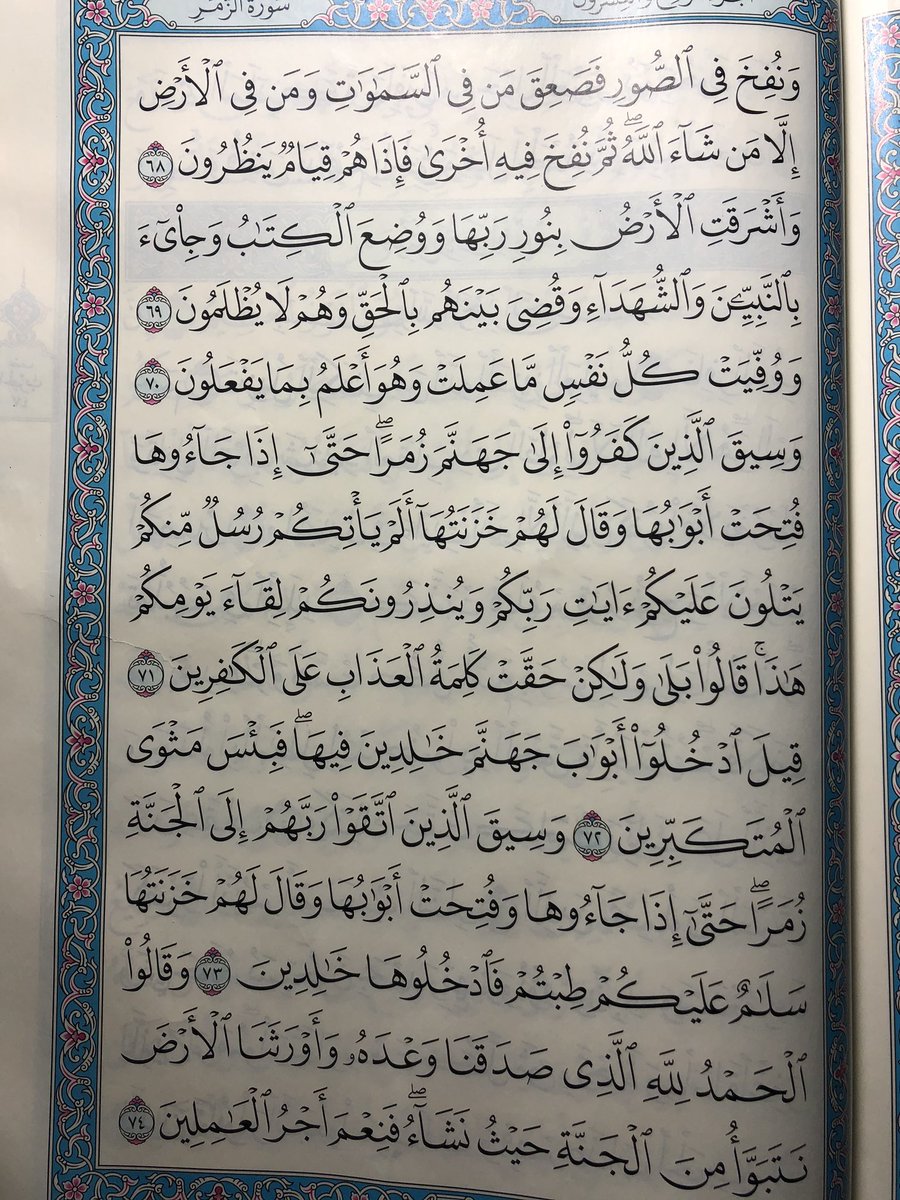 سورة الزمر
وَنُفِخَ فِي ٱلصُّورِ فَصَعِقَ مَن فِي ٱلسَّمَٰوَٰتِ وَمَن فِي ٱلۡأَرۡضِ
إِلَّا مَن شَآءَ ٱللَّهُۖ ثُمَّ نُفِخَ فِيهِ أُخۡرَىٰ فَإِذَا هُمۡ قِيَامٞ يَنظُرُونَ ٦٨
وَأَشۡرَقَتِ ٱلۡأَرۡضُ بِنُورِ رَبِّهَا وَوُضِعَ ٱلۡكِتَٰبُ وَجِاْيٓءَ
بِٱلنَّبِيِّـۧنَ وَٱلشُّهَدَآءِ وَقُضِيَ بَيۡنَهُم بِٱلۡحَقِّ وَهُمۡ لَا يُظۡلَمُونَ ٦٩
وَوُفِّيَتۡ كُلُّ نَفۡسٖ مَّا عَمِلَتۡ وَهُوَ أَعۡلَمُ بِمَا يَفۡعَلُونَ ٧٠
وَسِيقَ ٱلَّذِينَ كَفَرُوٓاْ إِلَىٰ جَهَنَّمَ زُمَرًاۖ حَتَّىٰٓ إِذَا جَآءُوهَا
فُتِحَتۡ أَبۡوَٰبُهَا وَقَالَ لَهُمۡ خَزَنَتُهَآ أَلَمۡ يَأۡتِكُمۡ رُسُلٞ مِّنكُمۡ
يَتۡلُونَ عَلَيۡكُمۡ ءَايَٰتِ رَبِّكُمۡ وَيُنذِرُونَكُمۡ لِقَآءَ يَوۡمِكُمۡ
هَٰذَاۚ قَالُواْ بَلَىٰ وَلَٰكِنۡ حَقَّتۡ كَلِمَةُ ٱلۡعَذَابِ عَلَى ٱلۡكَٰفِرِينَ ٧١
قِيلَ ٱدۡخُلُوٓاْ أَبۡوَٰبَ جَهَنَّمَ خَٰلِدِينَ فِيهَاۖ فَبِئۡسَ مَثۡوَى
ٱلۡمُتَكَبِّرِينَ ٧٢ وَسِيقَ ٱلَّذِينَ ٱتَّقَوۡاْ رَبَّهُمۡ إِلَى ٱلۡجَنَّةِ
زُمَرًاۖ حَتَّىٰٓ إِذَا جَآءُوهَا وَفُتِحَتۡ أَبۡوَٰبُهَا وَقَالَ لَهُمۡ خَزَنَتُهَا
سَلَٰمٌ عَلَيۡكُمۡ طِبۡتُمۡ فَٱدۡخُلُوهَا خَٰلِدِينَ ٧٣ وَقَالُواْ
ٱلۡحَمۡدُ لِلَّهِ ٱلَّذِي صَدَقَنَا وَعۡدَهُۥ وَأَوۡرَثَنَا ٱلۡأَرۡضَ
نَتَبَوَّأُ مِنَ ٱلۡجَنَّةِ حَيۡثُ نَشَآءُۖ فَنِعۡمَ أَجۡرُ ٱلۡعَٰمِلِينَ ٧٤